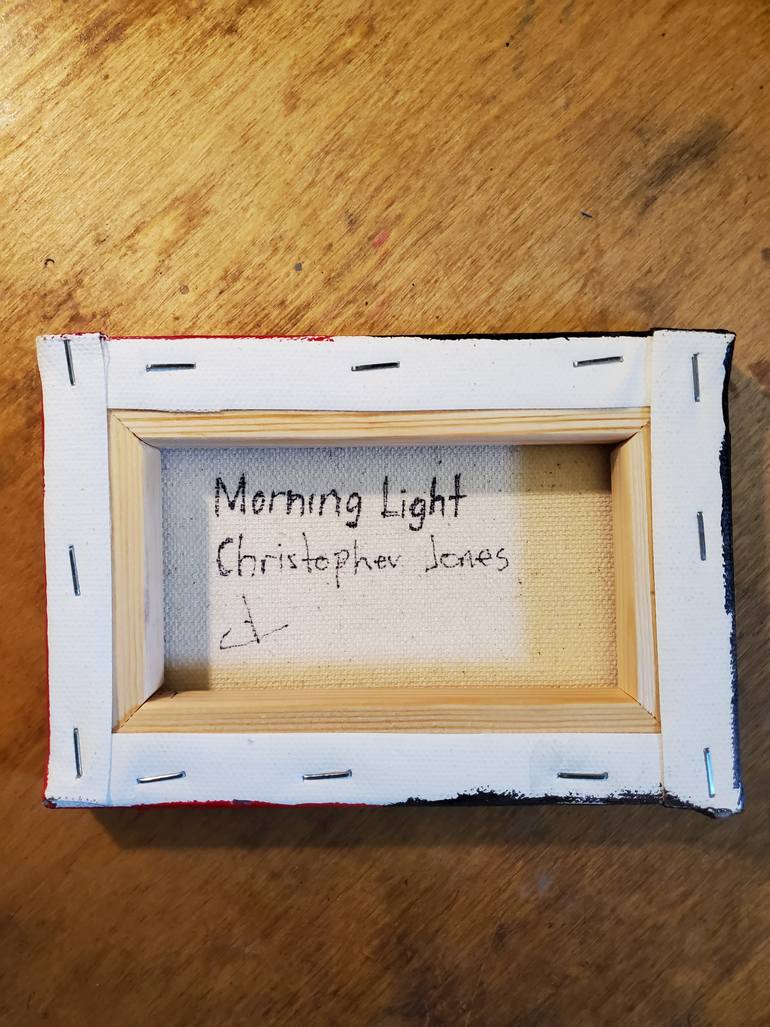 Morning Light
Christopher Jones